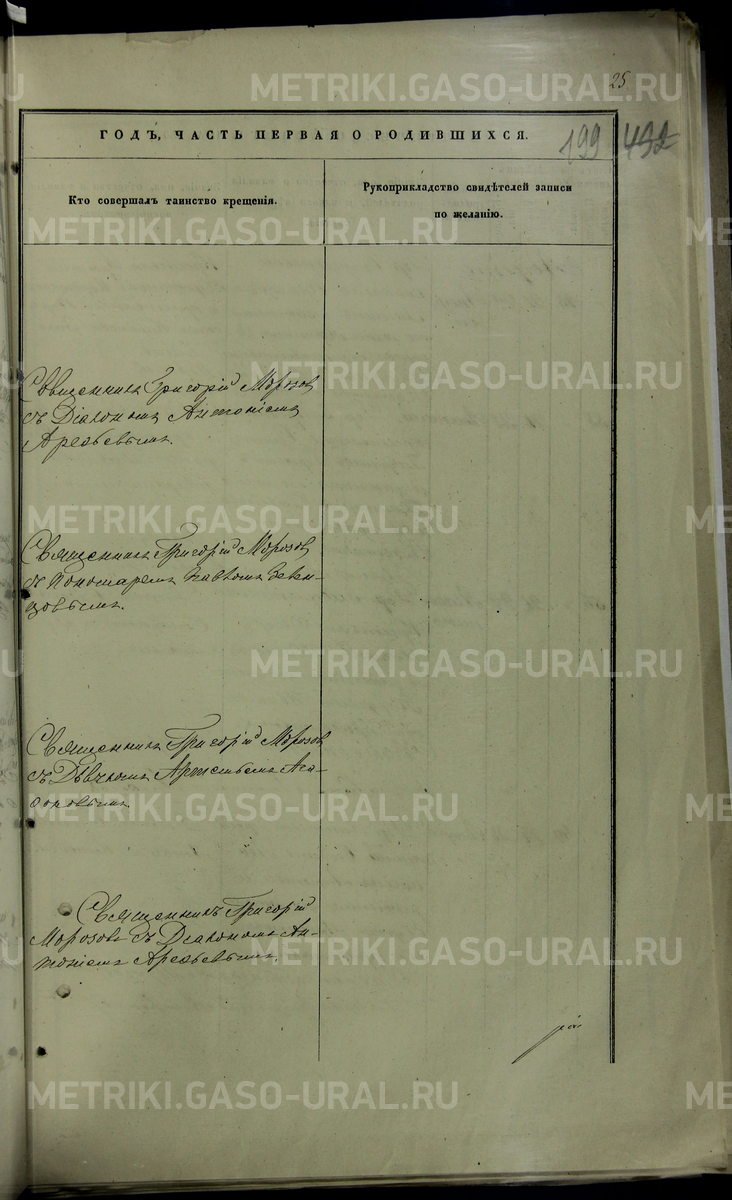 25
ГОДЪ, ЧАСТЬ ПЕРВАЯ О РОДИВШИХСЯ.
199 432
Кто совершалъ таинство крещенія.
Рукоприкладство свидѣтелей записи
по желанію.
Священникъ Григорій Морозов
съ Діакономъ Антоніемъ
Арефьевымъ.
Священникъ Григорій Морозов
съ Пономаремъ Павломъ
Священникъ Григорій Морозов
съ Дьячкомъ Артеміемъ Ага-
фоновымъ
Священникъ Григорій
Морозовъ съ Діакономъ Ан-
тоніемъ Арефьевымъ.
METRIKI.GASO-URAL.RU